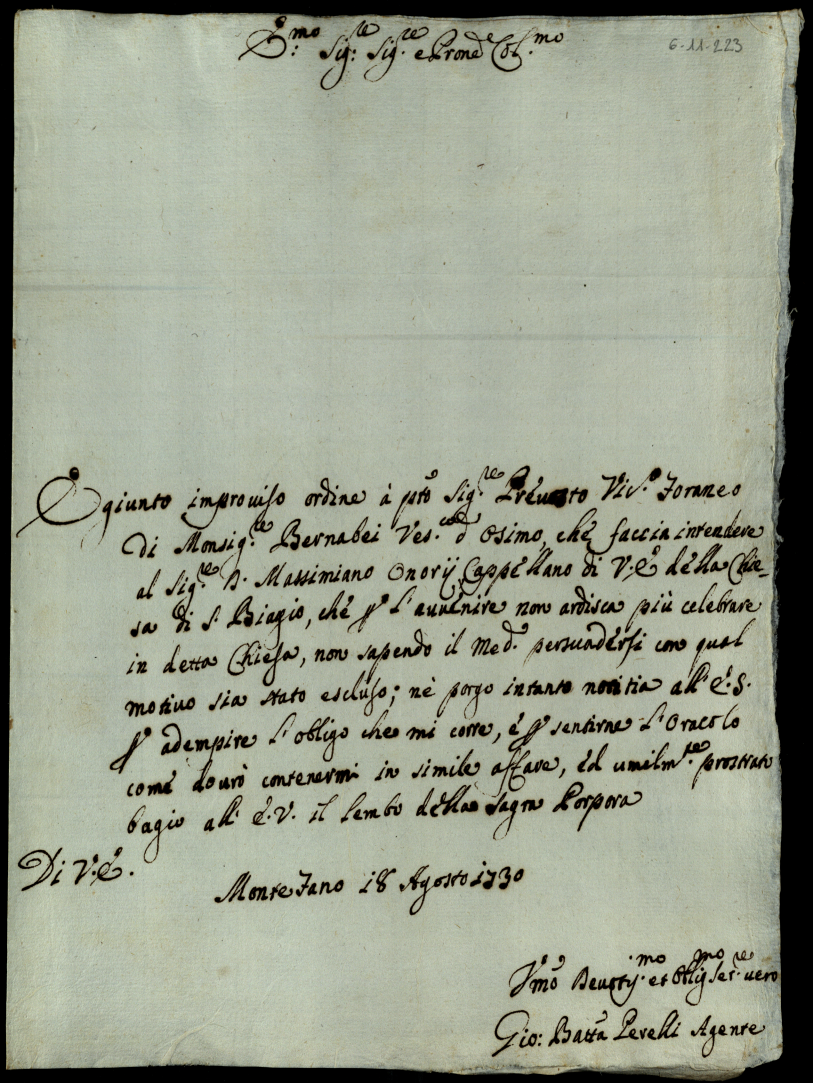 E.mo Sig.re Sig.re e Prone Col.mo
6-11-223
È giunto improviso ordine à pto Sig.re Prevosto Vic.o Foraneo
di Monsig.re Bernabei Ves.co d Osimo, che faccia intendere
al Sig.re D. Massimiano Onorij Cappellano di V.E. della Chie-
sa di S. Biagio, che p l'avvenire non ardisca più celebrare
in detta Chiesa, non sapendo il Med.o persuadersi con qual
motivo sia stato escluso; nè porgo intanto notitia all' E.S.
p adempire l'obligo che mi corre, è p sentirne l'Oracolo
come dovrò contenermi in simile affare, ed umilm.te prostrato
bagio all' E.V. il lembo della Sagra Porpora
Di V.E.
Monte Fano 18 Agosto 1730
Vmo Devot.mo et Oblig.mo Ser.re vero
Gio: Batta Perelli Agente